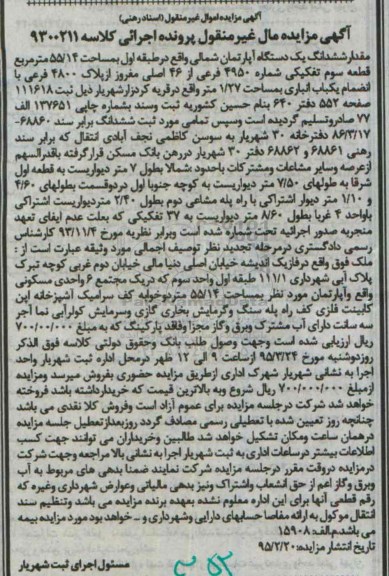 آگهی مزایده اموال غیرمنقول (اسناد رهنی)
آگهی مزایده مال غیرمنقول پرونده اجرائی کلاسه ۹۳۰۰۲۱۱
مقدار ششدانگ یک دستگاه آپارتمان شمالی واقع در طبقه اول بمساحت ۵۵/۱۴ مترمربع
قطعه سوم تفکیکی شماره ۴۹۵۰ فرعی از ۴۶ اصلی مفروز از پلاک ۴۸۰۰ فرعی با
انضمام یکباب انباری بمساحت ۱/۲۷ متر واقع در قریه کردزار شهریار ذیل ثبت ۱۱۱۶۱۸
صفحه ۵۵۲ دفتر ۶۴۰ بنام حسین کشوریه ثبت وسند بشماره چاپی ۱۳۷۶۵۱ الف
۷۷ صادر و تسلیم گردیده است وسپس تمامی مورد ثبت ششدانگ برابر سند ۶۸۸۶۰-
۸۶/۳/۱۷ دفترخانه ۳۰ شهریار به سوسن کاظمی نجف آبادی انتقال که برابر سند
رهنی ۶۸۸۶۱ و ۶۸۸۶۲ دفتر ۳۰ شهریار در رهن بانک مسکن قرار گرفته باقدرالسهم
از عرصه وسایر مشاعات ومشترکات باحدود :شمالا بطول ۷ متر دیواریست به قطعه اول
شرقا به طولهای ۷/۵۰ متر دیواریست به کوچه جنوبا اول در دوقسمت بطولهای ۴/۶۰
و ۱/۱۰ متر دیوار اشتراکی با راه پله مشاعی دوم بطول ۲/۴۰ متر دیواریست اشتراکی
باواحد ۴ غربا بطول ۸/۶۰ متر دیواریست به ۳۷ تفکیکی که بعلت عدم ایفای تعهد
منجربه صدور اجرائیه تحت شماره شده است وبرابر نظریه مورخ ۹۳/۱۱/۴ کارشناس
رسمی دادگستری درمرحله تجدید نظر توصیف اجمالی مورد وثیقه عبارت است از :
ملک فوق واقع در فاز یک اندیشه خیابان اصلی دنیا مالی خیابان دوم غربی کوچه تبرک
پلاک آبی شهرداری ۱۱۱/۱ طبقه اول واحد سوم که دریک مجتمع ۶ واحدی مسکونی
واقع وآپارتمان مورد نظر بمساحت ۵۵/۱۴ متر دوخوابه کف سرامیک آشپزخانه اپن
کابینت فلزی کف راه پله سنگ وگرمایش بخاری گازی وسرمایش کولرآبی نما آجر
سه سانت دارای آب مشترک وبرق وگاز مجزا وفاقد پارکینگ که به مبلغ ۷۰۰/۰۰۰/۰۰۰
ریال ارزیابی شده است وجهت وصول طلب بانک وحقوق دولتی کلاسه فوق الذکر
روز دوشنبه مورخ ۹۵/۳/۲۴ ازساعت ۹ الی ۱۲ ظهر درمحل اداره ثبت شهریار واحد
اجرا به نشانی شهریار شهرک اداری ازطریق مزایده حضوری بفروش میرسد ومزایده
ازمبلغ ۷۰۰/۰۰۰/۰۰۰ ریال شروع وبه بالاترین قیمت که خریدارداشته باشد فروخته
خواهد شد شرکت درجلسه مزایده برای عموم آزاد است وفروش کلا نقدی می باشد
چنانچه روز تعیین شده با تعطیلی رسمی مصادف گردد روزبعدازتعطیل جلسه مزایده
درهمان ساعت ومکان تشکیل خواهد شد طالبین وخریداران می توانند جهت کسب
اطلاعات بیشتر درساعات اداری به ثبت شهریار اجرا به نشانی بالا مراجعه وجهت شرکت
درمزایده دروقت مقرر درجلسه مزایده شرکت نمایند ضمنا بدهی های مربوط به آب
وبرق وگاز اعم از حق انشعاب واشتراک ونیز بدهی مالیاتی وعوارض شهرداری وغیره که
رقم قطعی آنها برای این اداره معلوم نشده بعهده برنده مزایده می باشد وتنظیم سند
انتقال موکول به ارائه مفاصا حسابهای دارایی وشهرداری و ... خواهد بود مورد مزایده بیمه
می باشد.م.الف: ۱۵۹۰۸
تاریخ انتشار مزایده: ۹۵/۲/۲۰
مسئول اجرای ثبت شهریار